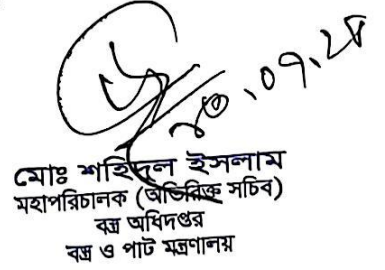 ২০.০৭.২৫
মোঃ শহিদুল ইসলাম
মহাপরিচালক (অতিরিক্ত সচিব)
বস্ত্র অধিদপ্তর
বস্ত্র ও পাট মন্ত্রণালয়